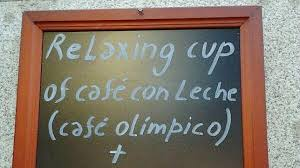 ReLaxing cup
of café con Leche
(café olímpico)
+